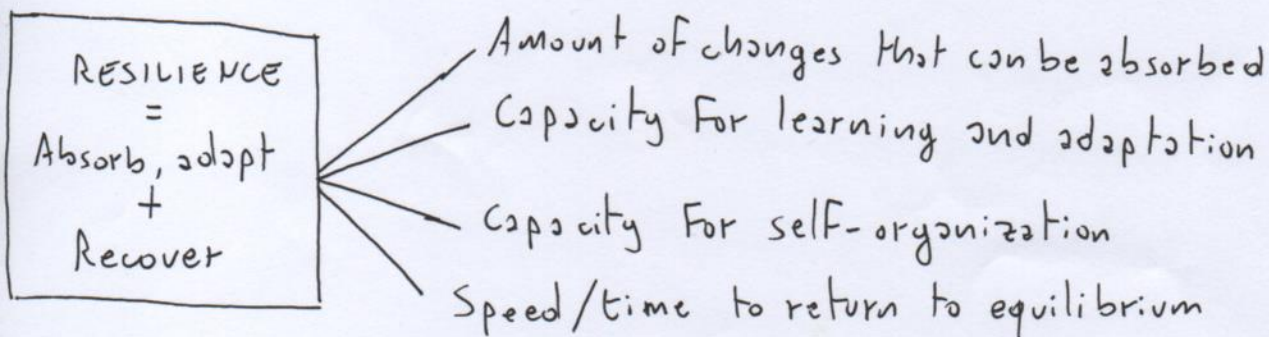 RESILIENCE
=
Absorb, adapt
+
Recover
Amount of changes that can be absorbed
Capacity For learning and adaptation
Capacity For self-organization
Speed/time to return to equilibrium